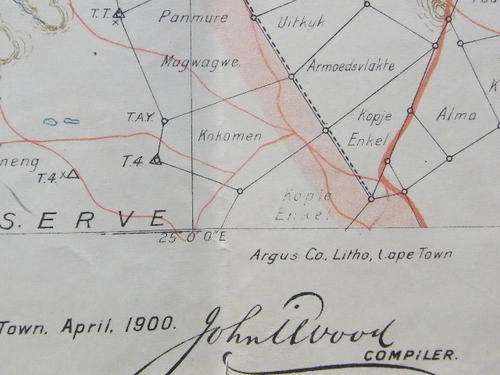 T.T.
Panmure
Uitkyk
Magwagwe
Armoedsvlakte
T.A.Y.
Knkomen
Kopje
Enkel
Alma
K
neng
T.4.
T.4
Kopje
Enkel
S. E R V E
25° 0' 0" E
Argus Co. Litho, Cape Town
Town. April. 1900.
John I Wood
COMPILER.